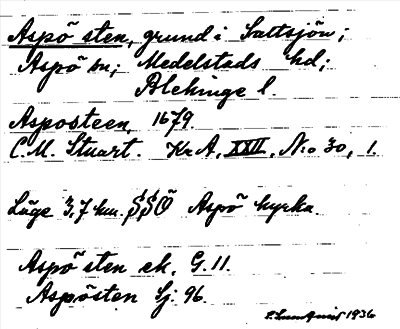 Aspö sten, grund i Saltsjön;
Aspö sn; Medelstads hd;
Blekinge l.
Asposteen, 1679.
C.M. Stuart. KrA, XXII, N:o 30, 1.
Läge 3,7 km. SSÖ Aspö kyrka.
Aspö sten ek. G. 11.
Aspösten Sj. 96.
1936